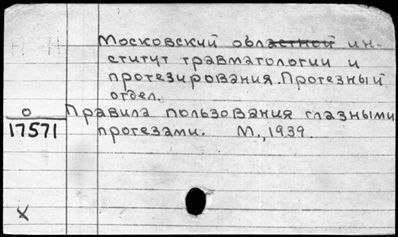 Московский областной ин-
ститут травматологии и
протезирования. Протезный
отдел.
О
17571
Правила пользования глазными
протезами. М., 1939.
X